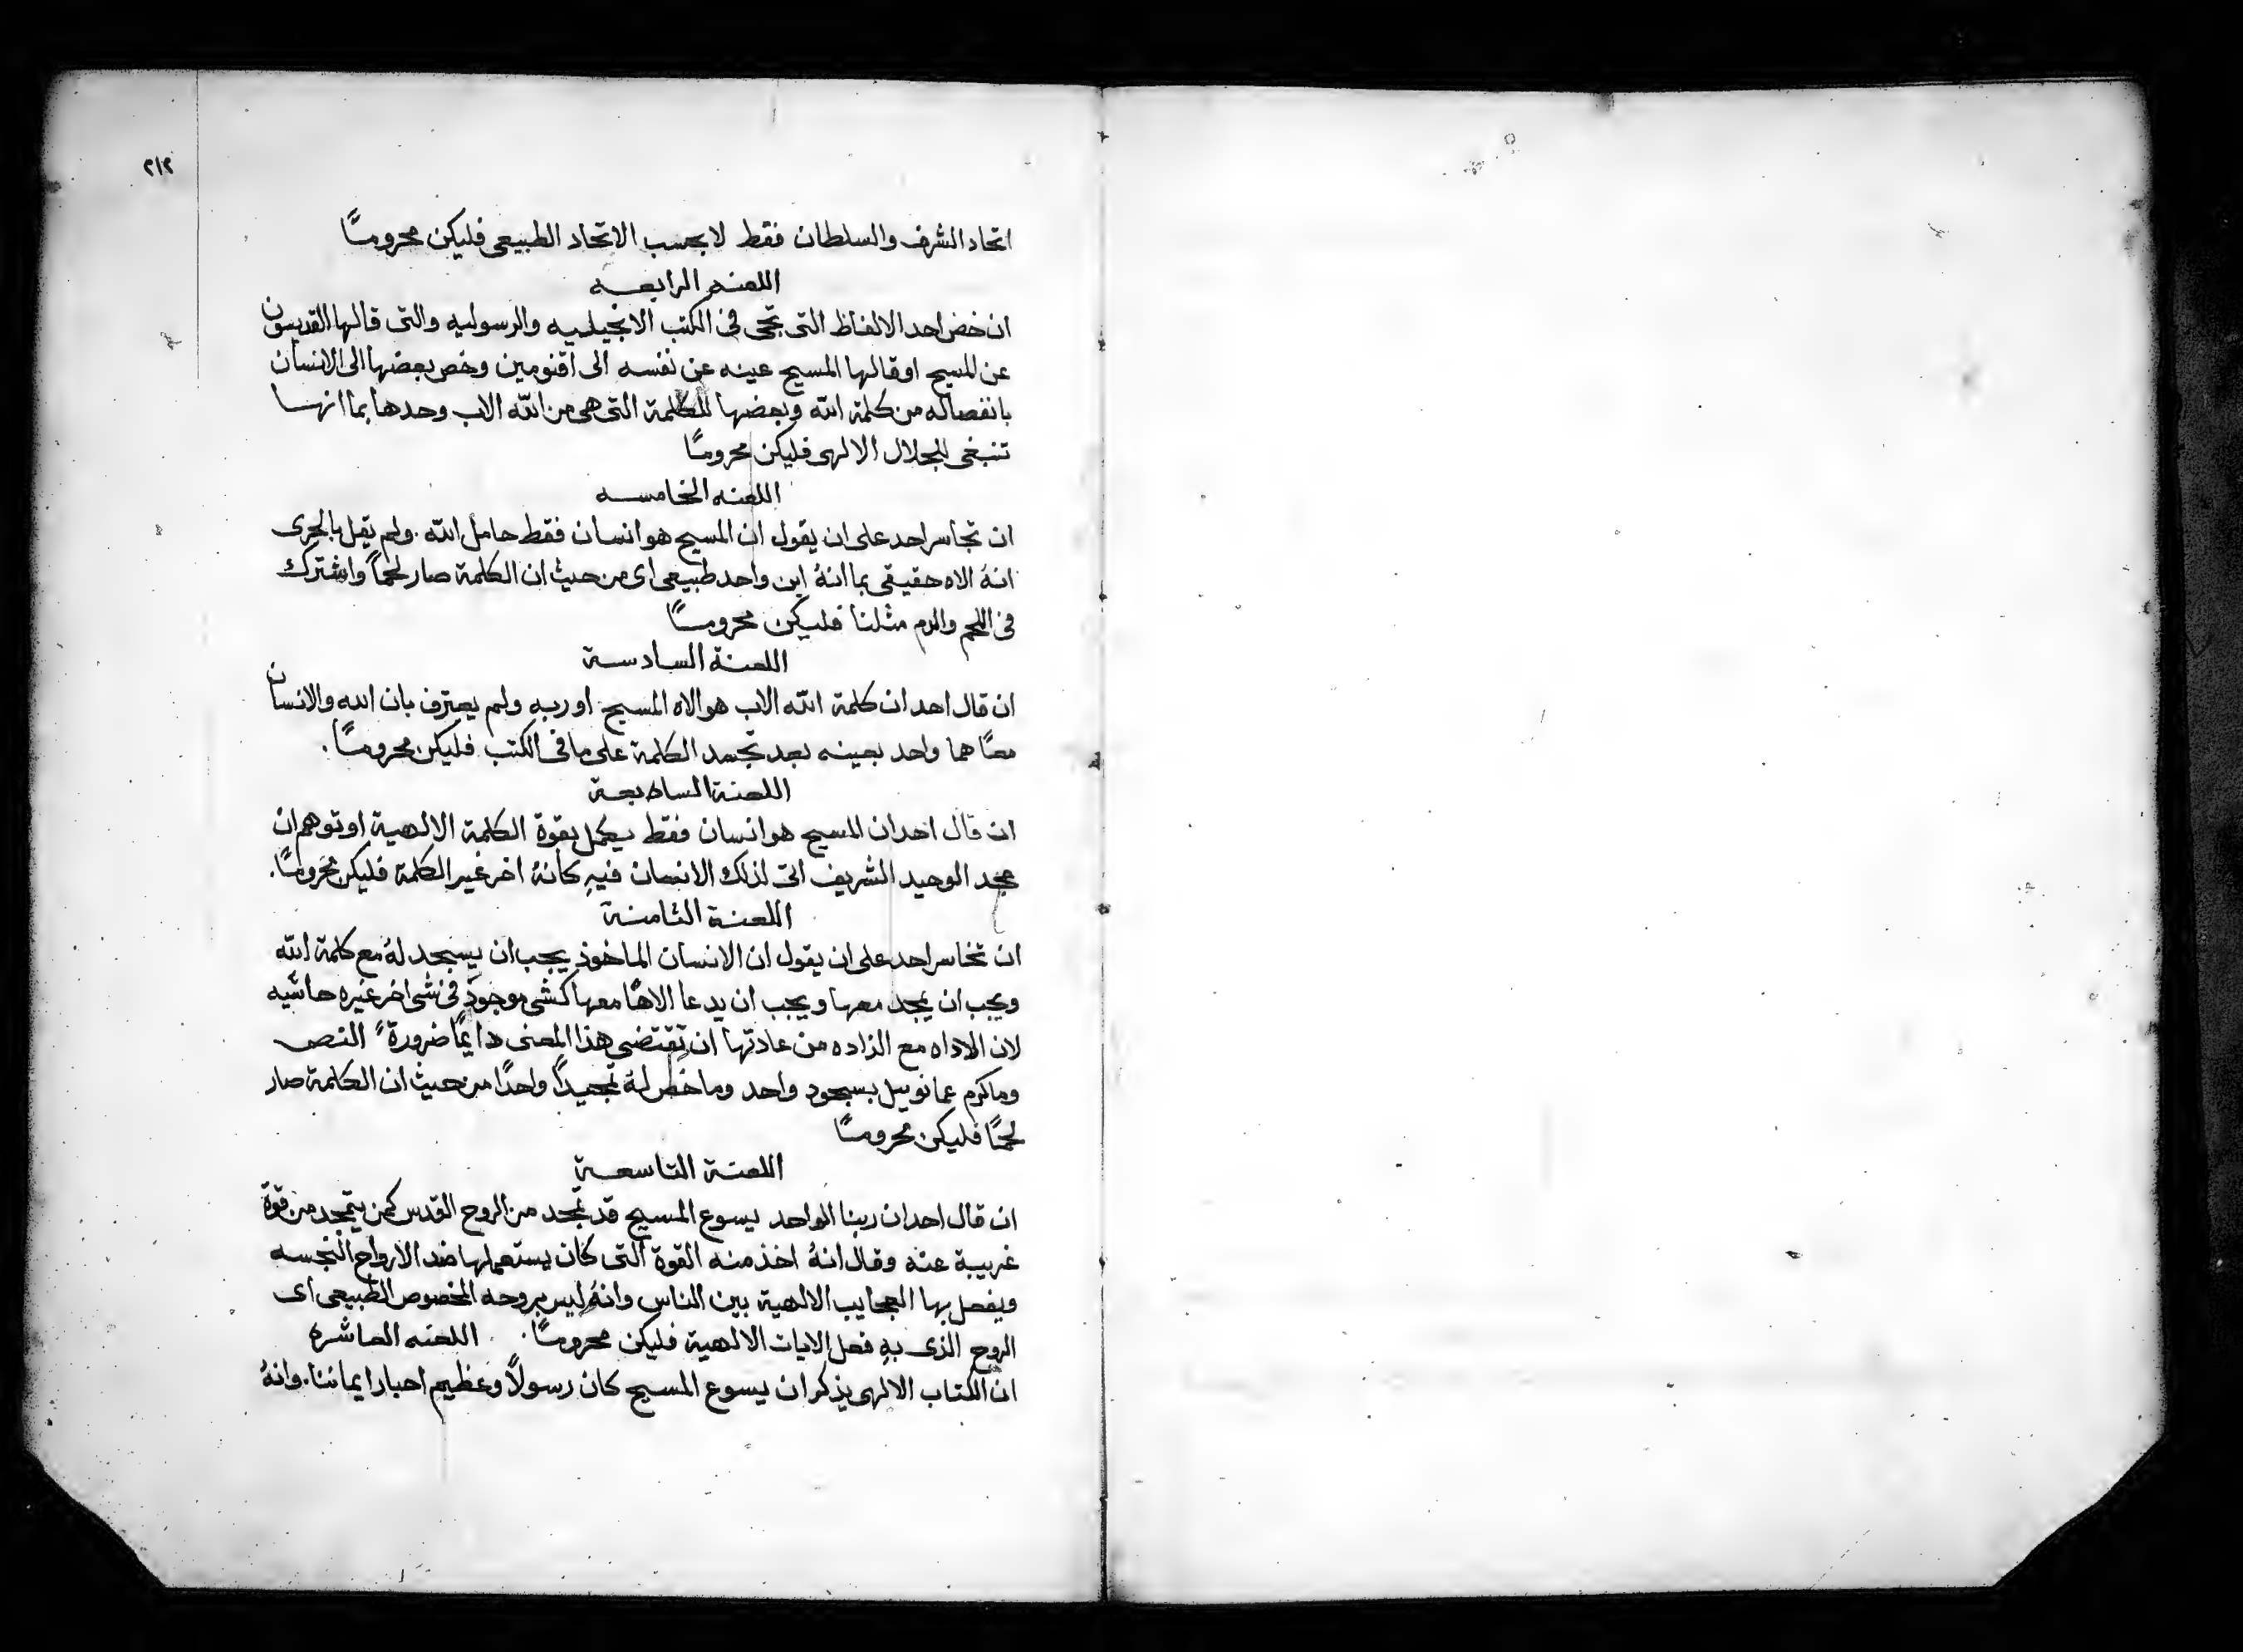 ٢١٢
اتحاد الشرف والسلطان فقط لا بحسب الاتحاد الطبيعى فليكن محرومـًا
اللعنه الرابعـــه
ان خص احد الالفاظ التى تجى فى الكتب الانجيليه والرسوليه والتى قالها القديسون
عن المسيح او قالها المسيح عينه عن نفسه الى اقنومين وخص بعضها الى الانسان
بانفصاله من كلمة الله وبعضها للكلمة التى هى من الله الاب وحدها بما انهـا
تنبغى للجلال الالهى فليكن محرومـًا
اللعنه الخامســه
ان تجاسر احد على ان يقول ان المسيح هو انسان فقط حامل الله . ولم يقل بالحرى
انهُ الاه حقيقى بما انهُ ابن واحد طبيعى اى من حيث ان الكلمة صار لحمًا واشترك
فى اللحم والدم مثلنا فليكن محرومـًا
اللعنة السادسـة
ان قال احد ان كلمة الله الاب هو الاه المسيح او ربه ولم يعترف بان الله والانسان
معـًا هما واحد بعينه بعد تجسد الكلمة على ما فى الكتب فليكن محرومـًا .
اللعنة السابعة
ان قال احد ان المسيح هو انسان فقط يكمل بقوة الكلمة الالهية او توهم ان
مجد الوحيد الشريف اتى لذلك الانسان فيهِ كانهُ اخر غير الكلمة فليكن محرومـًا .
اللعنـة الثامنـة
ان تخاسر احد على ان يقول ان الانسان الماخوذ يجب ان يسجد لهُ مع كلمة الله
ويجب ان يمجد معها ويجب ان يدعا الاهًا معها كشى موجود فى شى اخر غيره حاشيه
لان الاداه مع الزاده من عادتها ان تقتضى هذا المعنى دايمًا ضرورةً النص
وما كرم عمانوييل بسجود واحد وما خص لهُ تمجيدًا واحدًا من حيث ان الكلمة صار
لحمـًا فليكن محرومـًا
اللعنـة التاسعـة
ان قال احد ان ربنا الواحد يسوع المسيح قد تمجد من الروح القدس كمن يتمجد من قوة
غريبة عنهُ وقال انهُ اخذ منه القوة التى كان يستعملها ضد الارواح النجسه
ويفعل بها العجايب الالهية بين الناس وانهُ ليس بروحه المخصوص الطبيعى اى
الروح الذى بهِ فعل الايات الالهية فليكن محرومـًا . اللعنه العاشره
ان الكتاب الالهى يذكر ان يسوع المسيح كان رسولاً وعظيم احبار ايماننا . وانهُ